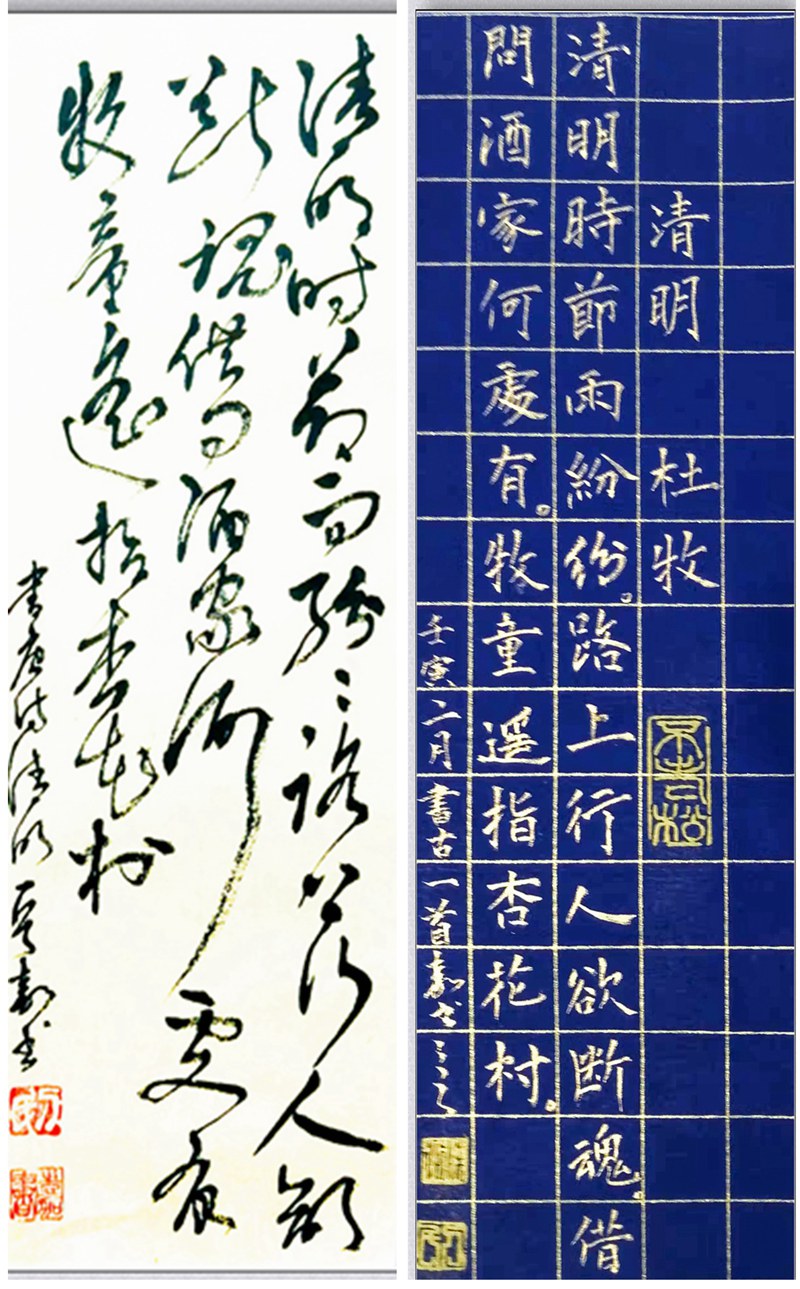 清明时节雨纷〻路上行人欲
断魂借问酒家何处有
牧童遥指杏花村
书唐诗清明
清明 杜牧
清明時節雨紛紛。路上行人欲断魂。借
問酒家何處有。牧童遥指杏花村。
壬寅二月書古一首